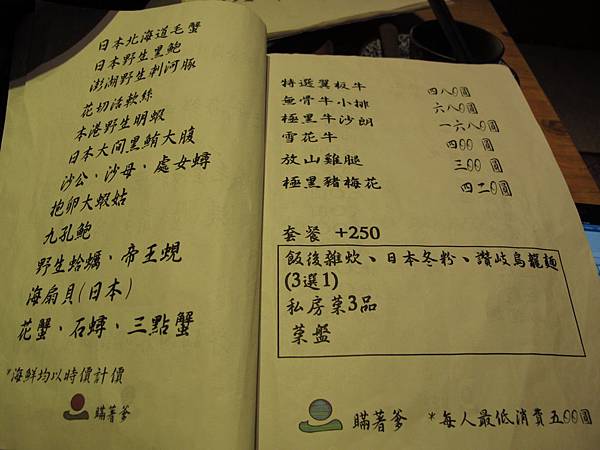 日本北海道毛蟹
日本野生黑鮑
澎湖野生刺河豚
花切活軟絲
本港野生明蝦
日本大间黑鮪大腹
沙公、沙母、處女蟳
抱卵大蝦姑
九孔鮑
野生蛤蠣、帝王蜆
海扇貝(日本)
花蟹、石蟳、三點蟹
*海鮮均以時價計價
瞞著爹
特選翼板牛 四八0圓
無骨牛小排 六八0圓
極黑牛沙朗 一六八0圓
雪花牛 四00圓
放山雞腿 三00圓
極黑豬梅花 四二0圓
套餐 +250
飯後雜炊、日本冬粉、讚岐烏龍麵
(3選1)
私房菜3品
菜盤
瞞著爹 *每人最低消費五00圓